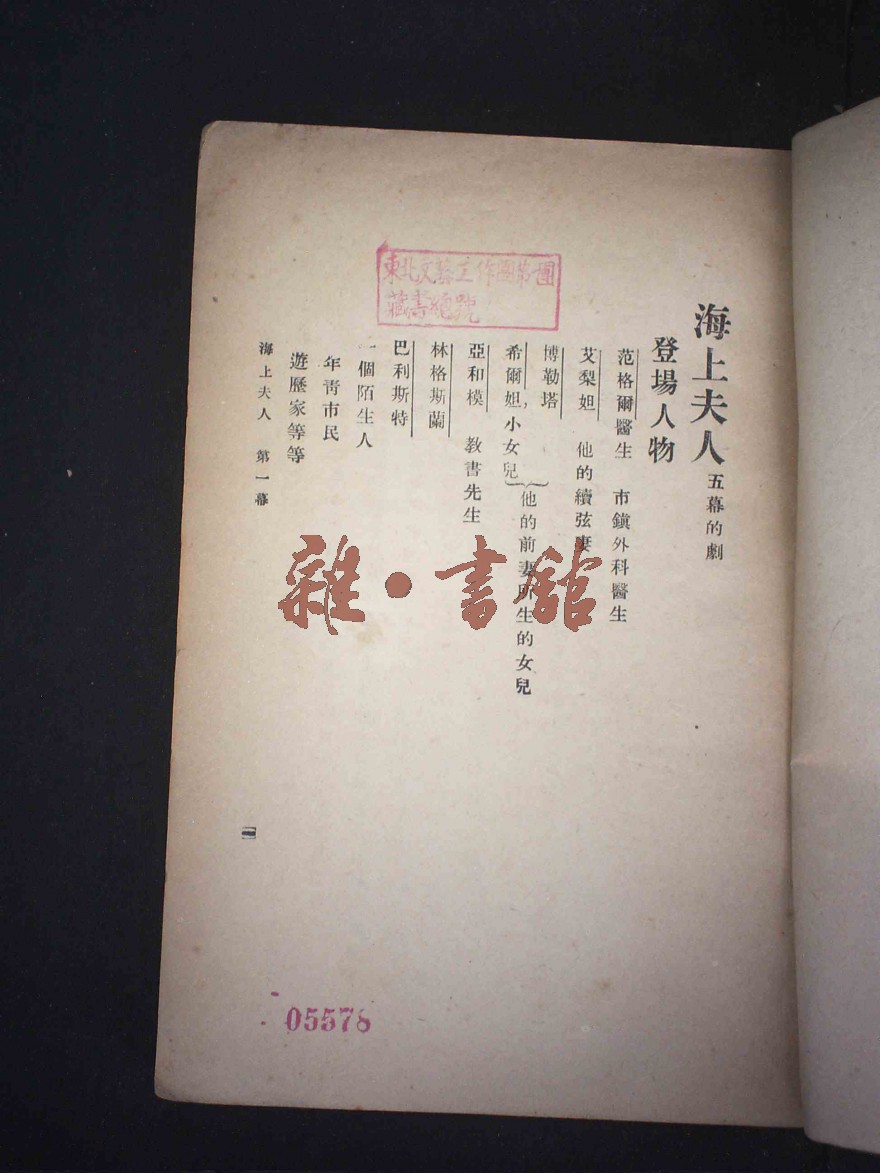 海上夫人 五幕的劇
登場人物
范格爾醫生 市鎮外科醫生
艾梨妲 他的續弦妻
博勒塔
希爾妲，小女兒
他的前妻所生的女兒
亞和模 教書先生
林格斯蘭
巴利斯特
一個陌生人
年青市民
遊歷家等等
海上夫人 第一幕
一
東北文藝工作團第一團
藏書總號
雜·書館
05578